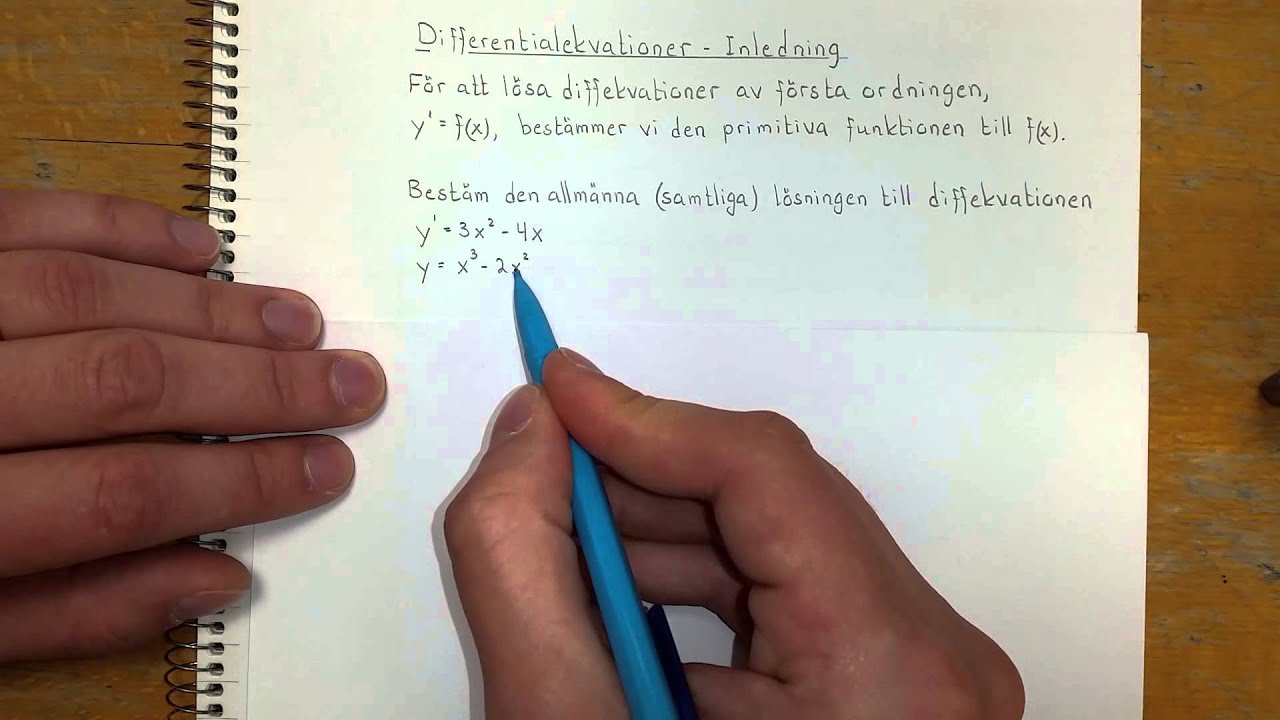 Differentialekvationer - Inledning
För att lösa diffekvationer av första ordningen,
y' = f(x), bestämmer vi den primitiva funktionen till f(x).
Bestäm den allmänna (samtliga) lösningen till diffekvationen
y' = 3x² - 4x
y = x³ - 2x²